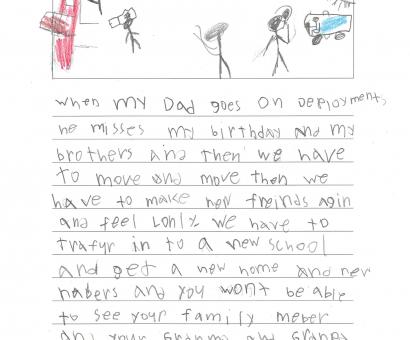 when my Dad goes on Deployment,
he misses my birthday and my
brothers and then we have
to move and move then we
have to make new freinds agin
and feel lonly. we have to
trafyr in to a new school
and get a new home and new
nabers and you wont be able
to see your family meber
and your Granma and Granpa